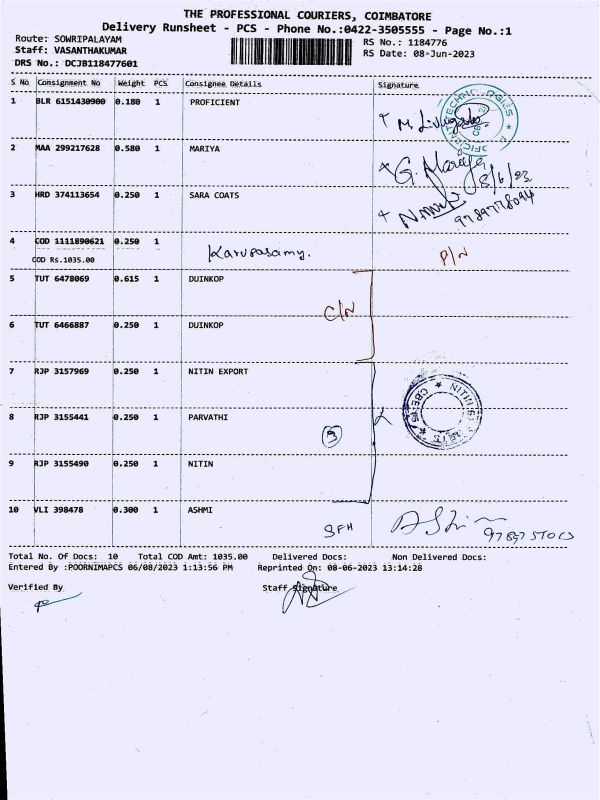 THE PROFESSIONAL COURIERS, COIMBATORE
Delivery Runsheet - PCS - Phone No.:0422-3505555 - Page No.:1
Route: SOWRIPALAYAM
RS No.: 1184776
Staff: VASANTHAKUMAR
RS Date: 08-Jun-2023
DRS No.: DCJB118477601
S No Consignment No Weight PCS Consignee Details Signature
1 BLR 6151430900 0.180 1 PROFICIENT
2 MAA 299217628 0.580 1 MARIYA
G. Mariya
8/6/23
3 HRD 374113654 0.250 1 SARA COATS
9789778094
4 COD 1111890621 0.250 1 Karupasamy. P/N
COD Rs.1035.00
5 TUT 6478069 0.615 1 DUINKOP
C/N
6 TUT 6466887 0.250 1 DUINKOP
7 RJP 3157969 0.250 1 NITIN EXPORT
8 RJP 3155441 0.250 1 PARVATHI
3
9 RJP 3155490 0.250 1 NITIN
10 VLI 398478 0.300 1 ASHMI
Total No. Of Docs: 10 Total COD Amt: 1035.00 Delivered Docs: Non Delivered Docs:
Entered By :POORNIMAPCS 06/08/2023 1:13:56 PM Reprinted On: 08-06-2023 13:14:28
Verified By Staff Signature